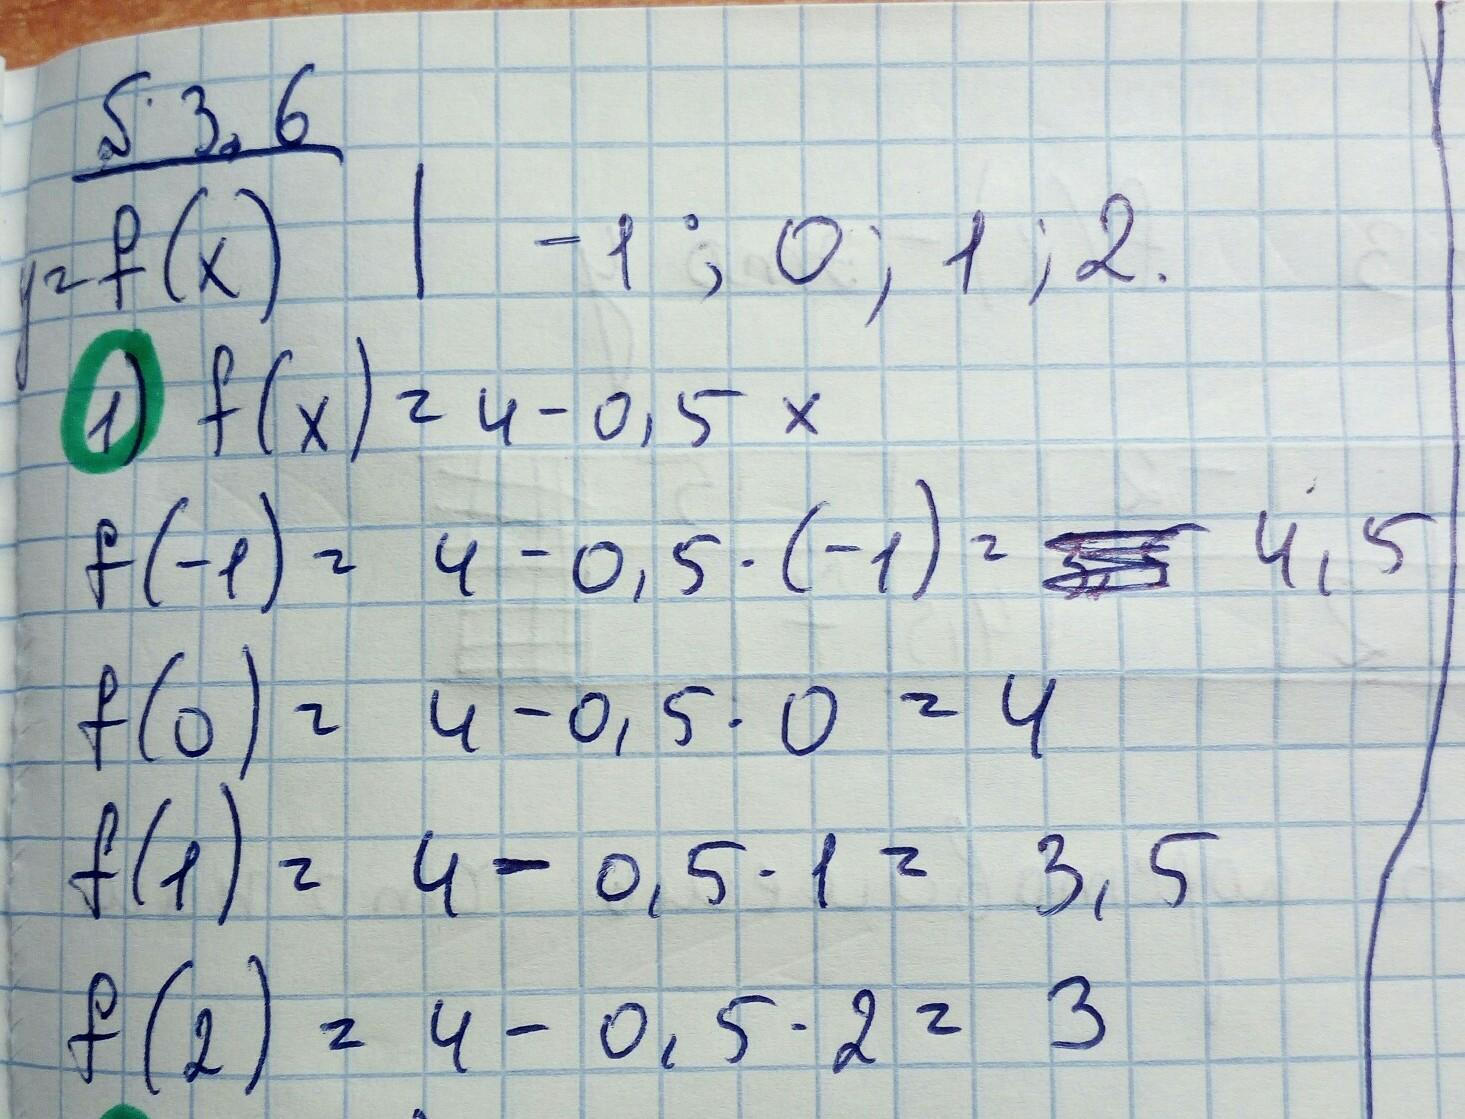 5.3.6
y=f(x) | -1; 0; 1; 2.
1) f(x)=4-0,5x
f(-1)= 4-0,5·(-1)= 4,5
f(0)= 4-0,5·0=4
f(1)= 4-0,5·1= 3,5
f(2)= 4-0,5·2= 3